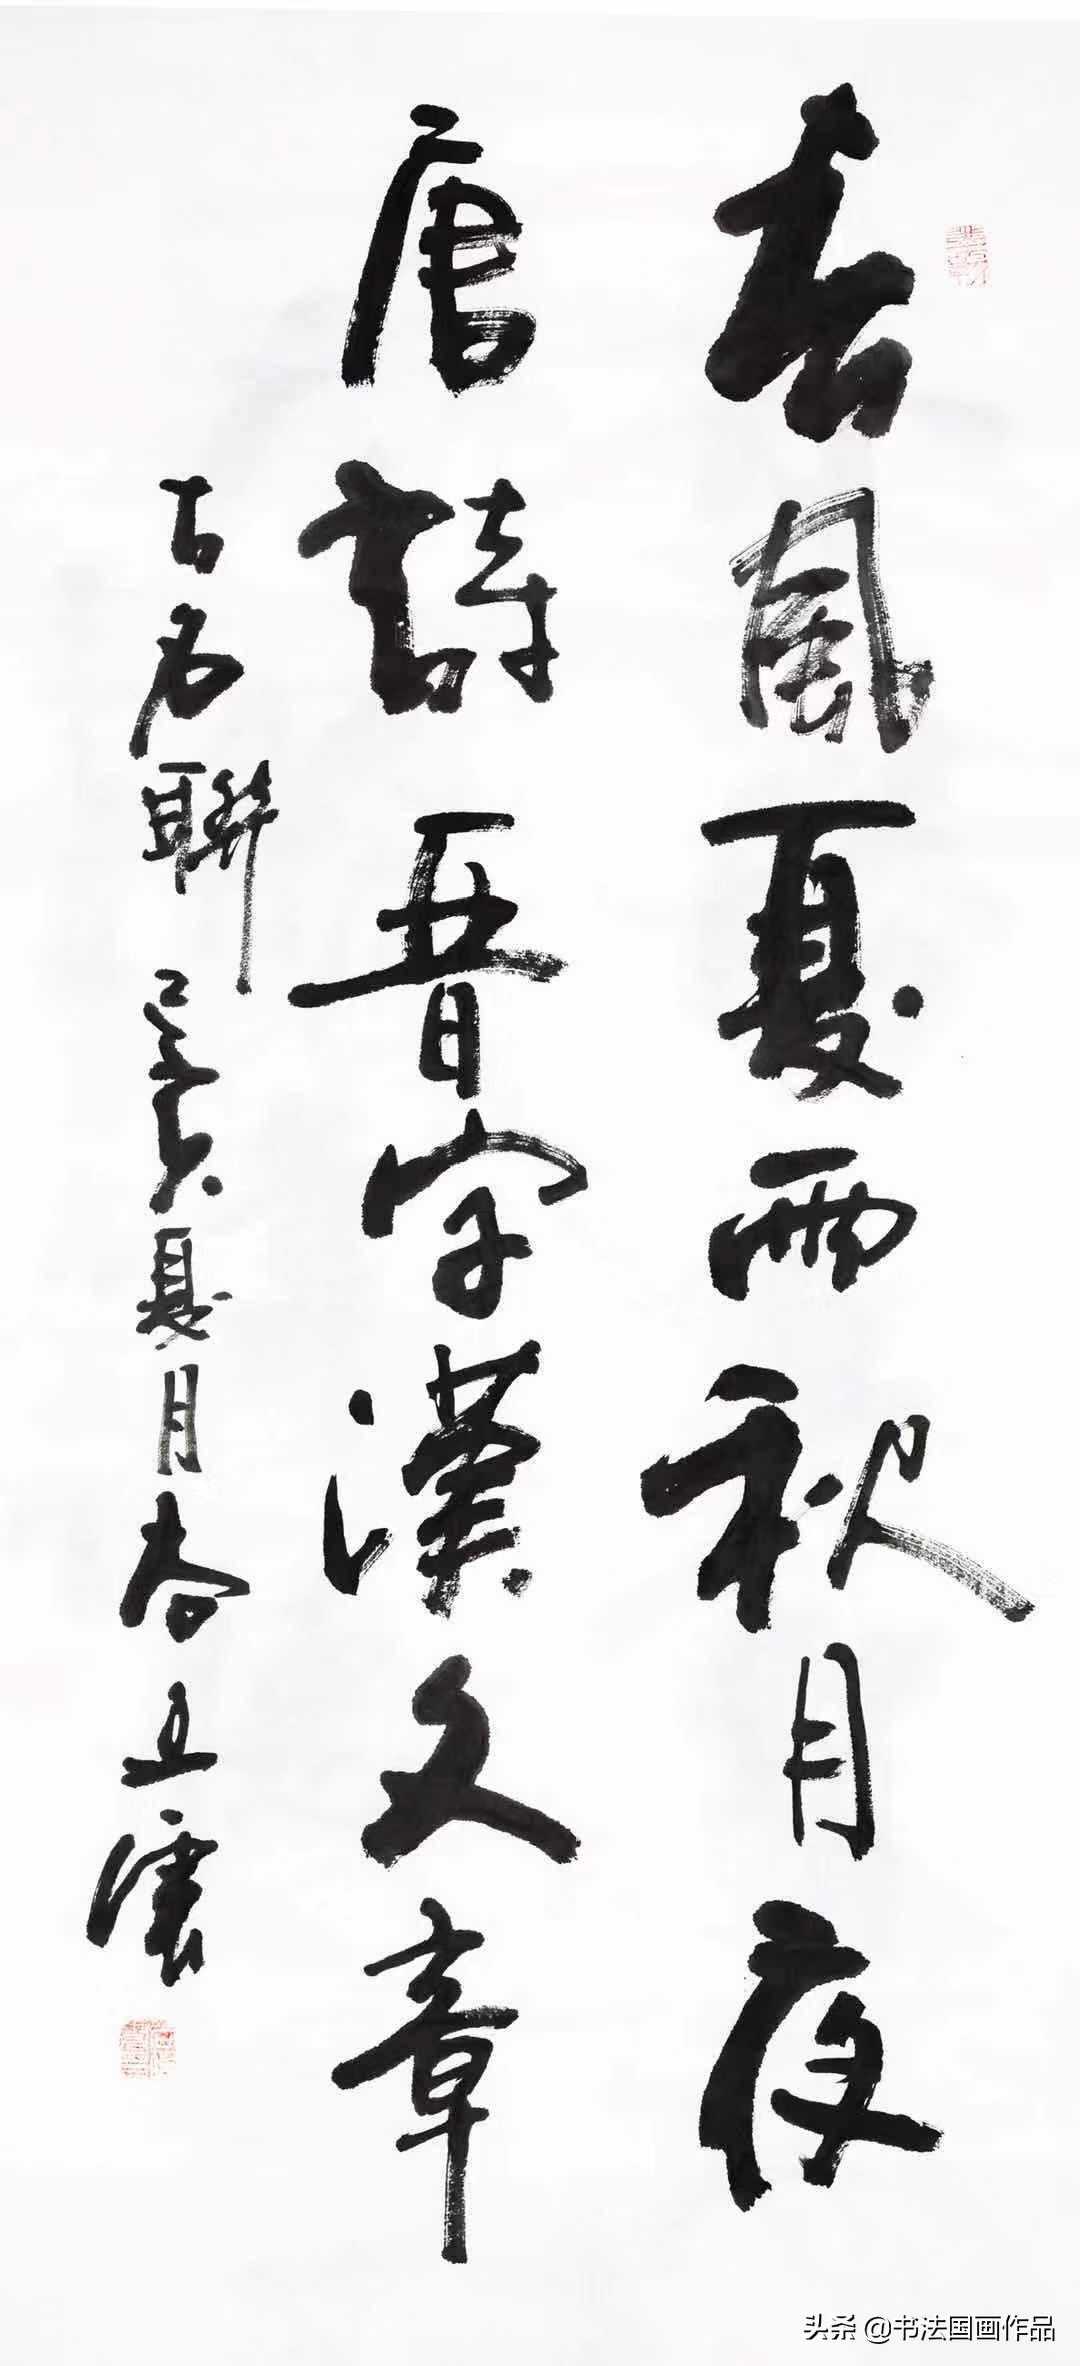 春風夏雨秋月夜
唐詩晉字漢文章
古名聯 己亥夏月李立震
头条 @书法国画作品